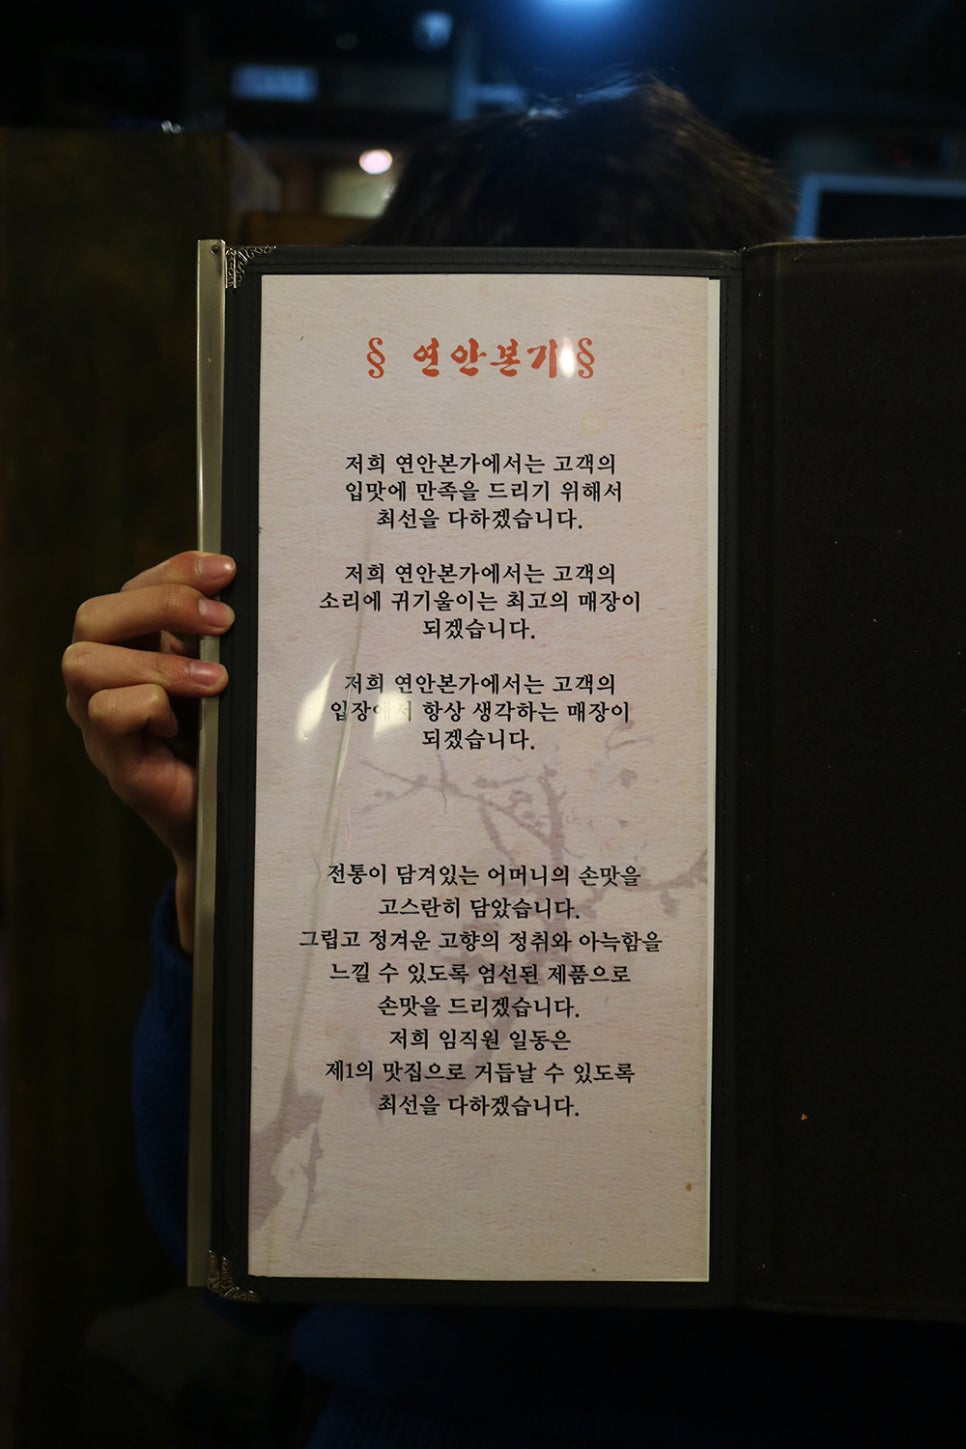 § 연안본가 §
저희 연안본가에서는 고객의
입맛에 만족을 드리기 위해서
최선을 다하겠습니다.
저희 연안본가에서는 고객의
소리에 귀기울이는 최고의 매장이
되겠습니다.
저희 연안본가에서는 고객의
입장에서 항상 생각하는 매장이
되겠습니다.
전통이 담겨있는 어머니의 손맛을
고스란히 담았습니다.
그립고 정겨운 고향의 정취와 아늑함을
느낄 수 있도록 엄선된 제품으로
손맛을 드리겠습니다.
저희 임직원 일동은
제1의 맛집으로 거듭날 수 있도록
최선을 다하겠습니다.